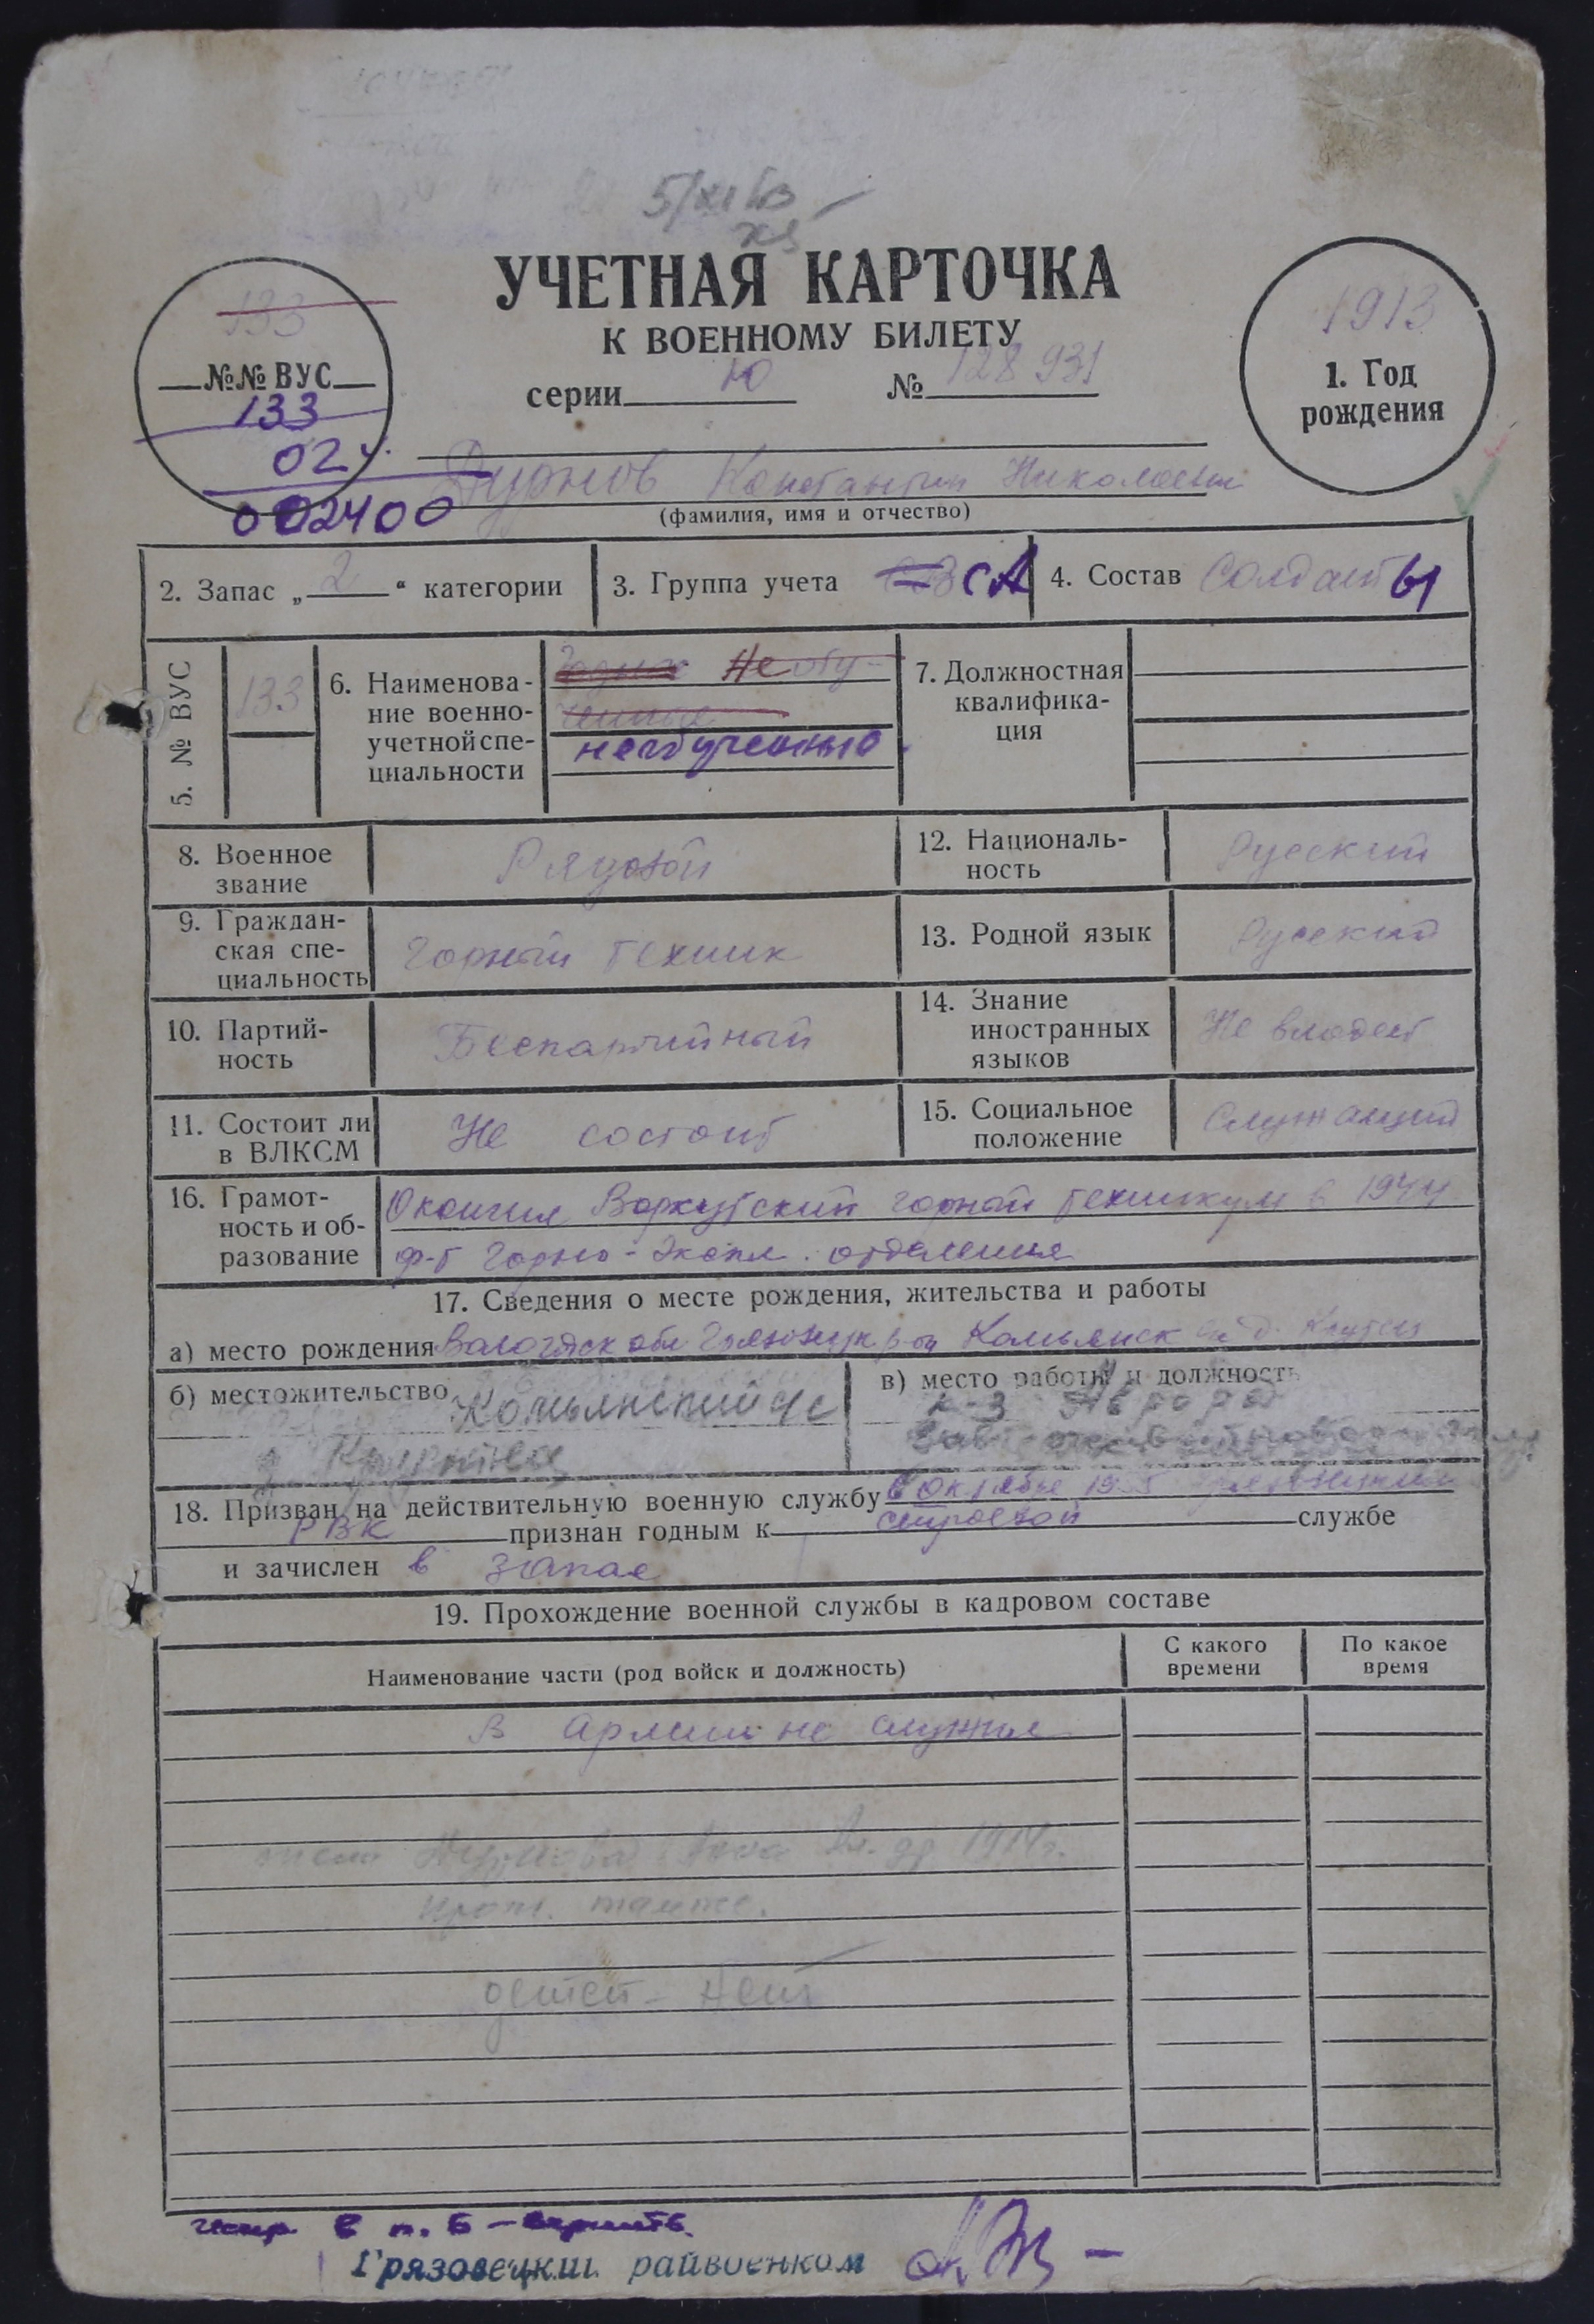 УЧЕТНАЯ КАРТОЧКА
К ВОЕННОМУ БИЛЕТУ
серии Ю № 128931
133
№№ ВУС
133
02
002400
1913
1. Год
рождения
Дурнов Константин Николаевич
(фамилия, имя и отчество)
2. Запас „2“ категории
3. Группа учета СА
4. Состав Солдаты
5. № ВУС 133
6. Наименова-
ние военно-
учетной спе-
циальности
Необу-
ченные
необученные
7. Должностная
квалифика-
ция
8. Военное
звание
Рядовой
12. Националь-
ность
Русский
9. Граждан-
ская спе-
циальность
Горный техник
13. Родной язык Русский
10. Партий-
ность
Беспартийный
14. Знание
иностранных
языков
Не владеет
11. Состоит ли
в ВЛКСМ
Не состоит
15. Социальное
положение
Служащий
16. Грамот-
ность и об-
разование
Окончил Воркутский горный техникум в 1944
Горно-Экспл. отделения
17. Сведения о месте рождения, жительства и работы
а) место рождения Вологодск обл р-он Комьянск
б) местожительство Комьянский с/с
д.
в) место работы и должность
к-з Аврора
18. Призван на действительную военную службу в Октябре
РВК признан годным к строевой службе
и зачислен в запас
19. Прохождение военной службы в кадровом составе
Наименование части (род войск и должность)
С какого
времени
По какое
время
В армии не служил
жена Дурнова Анна 1914г.
прож. там же.
детей - нет
в п. 6 -
Грязовецкий райвоенком